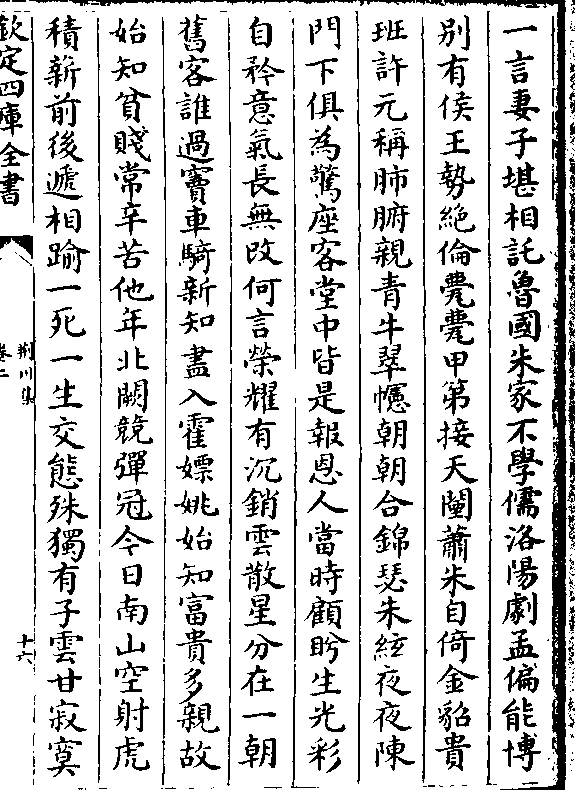 一言妻子堪相託魯國朱家不學儒洛陽劇孟偏能博
别有侯王勢絶倫甍甍甲第接天闉蕭朱自倚金貂貴
班許元稱肺腑親青牛翠幰朝朝合錦瑟朱絃夜夜陳
門下俱為驚座客堂中皆是報恩人當時顧盻生光彩
自矜意氣長無改何言榮耀有沉銷雲散星分在一朝
舊客誰過竇車騎新知盡入霍嫖姚始知富貴多親故
始知貧賤常辛苦他年北闕競彈冠今日南山空射虎
積薪前後遞相踰一死一生交態殊獨有子雲甘寂寞
欽定四庫全書
荆川集
卷二
十六